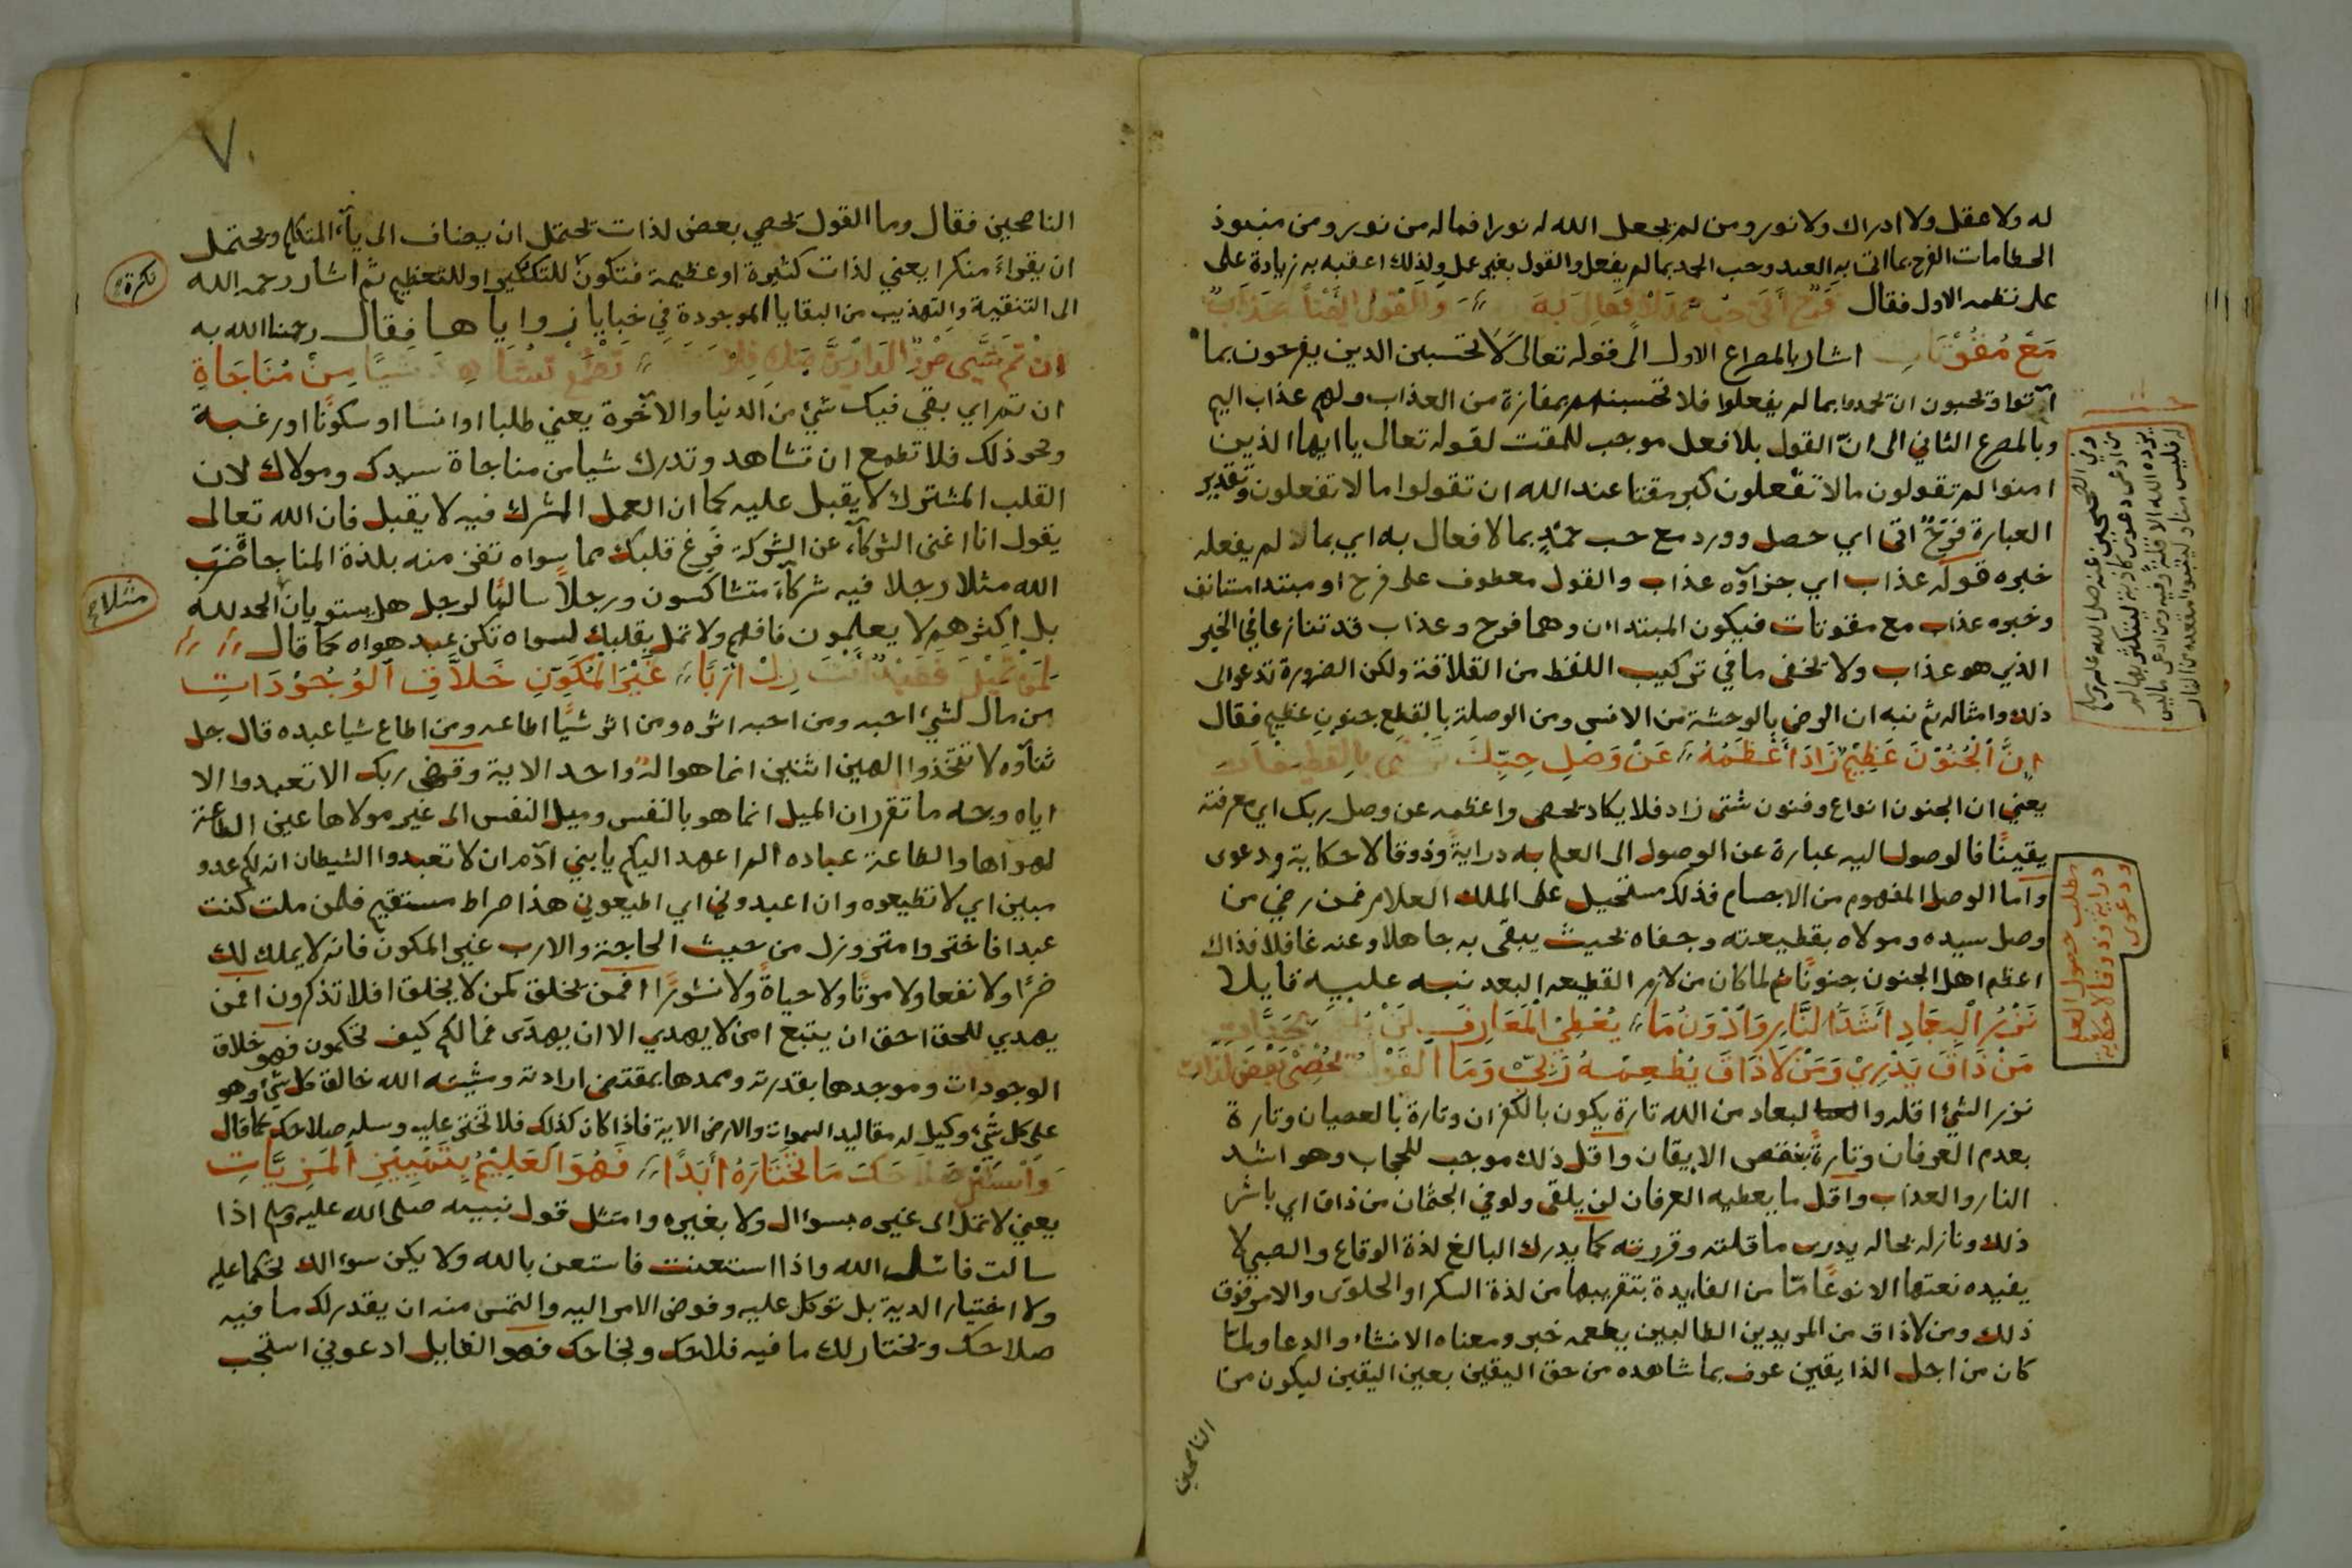 له ولا عقل ولا ادراك ولا نور ومن لم يجعل الله له نورا فما له من نور ومن منبوذ
الحطامات الفرح بما اتى به العبد وحب الحمد بما لم يفعل والقول بغير عمل ولذلك اعقبه به زيادة على
على نظمه الاول فقال فرح أتى حب والقول
مع مقوتات اشار بالمصراع الاول الى قوله تعالى لا تحسبن الذين يفرحون بما
آتوا وتحبون ان تحمدوا بما لم يفعلوا فلا تحسبنهم بمفازة من العذاب ولهم عذاب اليم
وبالمصرع الثاني الى انّ القول بلا فعل موجب للمقت لقوله تعالى يا ايها الذين
امنوا لم تقولون مالا تفعلون كبر مقتا عند الله ان تقولوا ما لا تفعلون وتقدير
العبارة فرَحٌ اتى اي حصل وورد مع حب حمدٍ بما لا فعال به اي بما لا لم يفعله
خبره قوله عذاب اي جزآؤه عذاب والقول معطوف على فرح او مبتدا مستانف
وخبره عذاب مع مقوتات فيكون المبتداان وهما فرح وعذاب قد تنازعا في الخبر
الذي هو عذاب ولا يخفى ما في تركيب اللفظ من القلاقة ولكن الضرورة تدعو الى
ذلك وامثاله ثم نبه ان الرضى بالوحشة من الانس ومن الوصلة بالقطع جنون عظيم فقال
إنّ الجُنُوْنَ عَظِيْمٌ زَادَ أَعْظَمُهُ // عَنْ وَصْلِ حِبِّكَ بالقطيعات
يعني ان الجنون انواع وفنون شتى زاد فلا يكاد يحصى واعظمه عن وصل ربك اي معرفته
يقينًا فالوصول اليه عبارة عن الوصول الى العلم به درايةً وذوقا لا حكاية ودعوى
واما الوصل المفهوم من الاجسام فذلك مستحيل على الملك العلام فمن رضي من
وصل سيده ومولاه بقطيعته وجفاه بحيث يبقى به جاهلا وعنه غافلا فذاك
اعظم اهل الجنون جنونًا ثم لما كان من لازم القطيعه البعد نبه عليه قايلا
نَزْرُ الْبِعَادِ أَشَدُّ النَّارِ وَأَدْوَنُ مَا // يُعْطِيْ الْمَعَارِفَ لَنْ
مَنْ ذَاقَ يَدْرِيْ وَمَنْ لَا ذَاقَ يُطْعِمُهُ رَبِّيْ وَمَا القَوْلُ تُحْصِيْ بَعْضَ لذات
نزر الشيء اقله والبعاد من الله تارة يكون بالكفران وتارة بالعصيان وتارة
بعدم العرفان وتارةً بنقص الايقان واقل ذلك موجب للحجاب وهو اشد
النار والعذاب واقل ما يعطيه العرفان لن يلقى ولو في الجنان من ذاق اي باشر
ذلك ونازله بحاله يدرى ما قلته وقررته كما يدرك البالغ لذة الوقاع والصبي لا
يفيده نعتها الا نوعًا مّا من الفايدة بتقريبها من لذة السكر او الحلوى والامر فوق
ذلك ومن لا ذاق من المريدين الطالبين يطعمه خبر ومعناه الانشاء والدعا ولما
كان من اجل الذايقين عرف بما شاهده من حق اليقين بعين اليقين ليكون من
الناصحين
وفي الصحيحين عنه صلى الله عليه وسلم
من ادعى دعوى كاذبة ليتكثر بها لم
يزده الله الا قلة وفيه ومن ادعى ما ليس
له فليس منا وليتبوا مقعده من النار
مطلب حصول العلم
دراية وذوقا لا حكاية
ودعوى
٧٠
الناصحين فقال وما القول تحصي بعض لذات يحتمل ان يضاف الى يآء المتكلم ويحتمل
ان يقراء منكرا يعني لذات كثيرة او عظيمة فتكون للتكثير او للتعظيم ثم اشار رحمه الله
نكرة
الى التنقية والتهذيب من البقايا الموجودة في خبايا زواياها فقال رحمنا الله به
إنْ تَمَّ شَيْءٌ مِنَ الدَارَيْنِ تَطْمَعْ شيئًا مِنْ مُنَاجَاةِ
ان تم اي بقي فيك شئ من الدنيا والآخرة يعني طلبا او انسًا او سكونًا او رغبة
ونحو ذلك فلا تطمع ان تشاهد وتدرك شيا من مناجاة سيدك ومولاك لان
القلب المشترك لا يقبل عليه كما ان العمل المشرك فيه لا يقبل فان الله تعالى
يقول انا اغنى الشركآء عن الشركة فرغ قلبك مما سواه تفز منه بلذة المناجاة ضرب
الله مثلا رجلا فيه شركآء متشاكسون ورجلاً سالمًا لرجل هل يستويان الحمد لله
مثلا
بل اكثرهم لا يعلمون فافهم ولا تمل بقلبك لسواه تكن عبد هواه كما قال
لِمَنْ تَمِيْلُ أَنْتَ غَيْرَ الْمُكَوِّنِ خَلَّاقِ الْوُجُوْدَاتِ
من مال لشيء احبه ومن احبه اثره ومن اثر شيًا اطاعه ومن اطاع شيا عبده قال جل
ثنآؤه لا تتخذوا الهين اثنين انما هو اله واحد الاية وقضى ربك الا تعبدوا الا
اياه وجه ما تقرر ان الميل انما هو بالنفس وميل النفس الى غير مولاها عين الطاعة
لهواها والطاعة عباده الم اعهد اليكم يا بني آدم ان لا تعبدوا الشيطان انه لكم عدو
مبين اي لا تطيعوه وان اعبدوني اي اطيعوني هذا صراط مستقيم فلمن ملت كنت
عبدا فاختر وامتز وزل من حيث الحاجة والارب غير المكون فانه لا يملك لك
ضرًا ولا نفعا ولا موتًا ولا حياةً ولا نشورًا افمن يخلق كمن لا يخلق افلا تذكرون افمن
يهدي للحق احق ان يتبع امن لا يهدي الا ان يهدى فما لكم كيف تحكمون فهو خلاق
الوجودات وموجدها بقدرته وممدها بمقتضى ارادته ومشيئته الله خالق كل شيء وهو
على كل شيء وكيل له مقاليد السموات والارض الاية فاذا كان كذلك فلا تختر عليه وسله صلاحك كما قال
صَلَاحَكَ مَا تَخْتَارَهُ أَبَدًا // فَهُوَ الْعَلِيْمُ بِتَمْيِيْزِ الْمَزِيَّاتِ
يعني لا تمل الى غيره بسوال ولا بغيره وامتثل قول نبيه صلى الله عليه وسلم اذا
سالت فاسئل الله واذا استعنت فاستعن بالله ولا يكن سوالك تحكما عليه
ولا اختيار الديه بل توكل عليه وفوض الامر اليه والتمس منه ان يقدر لك ما فيه
صلاحك ويختار لك ما فيه فلاحك ونجاحك فهو القايل ادعوني استجب